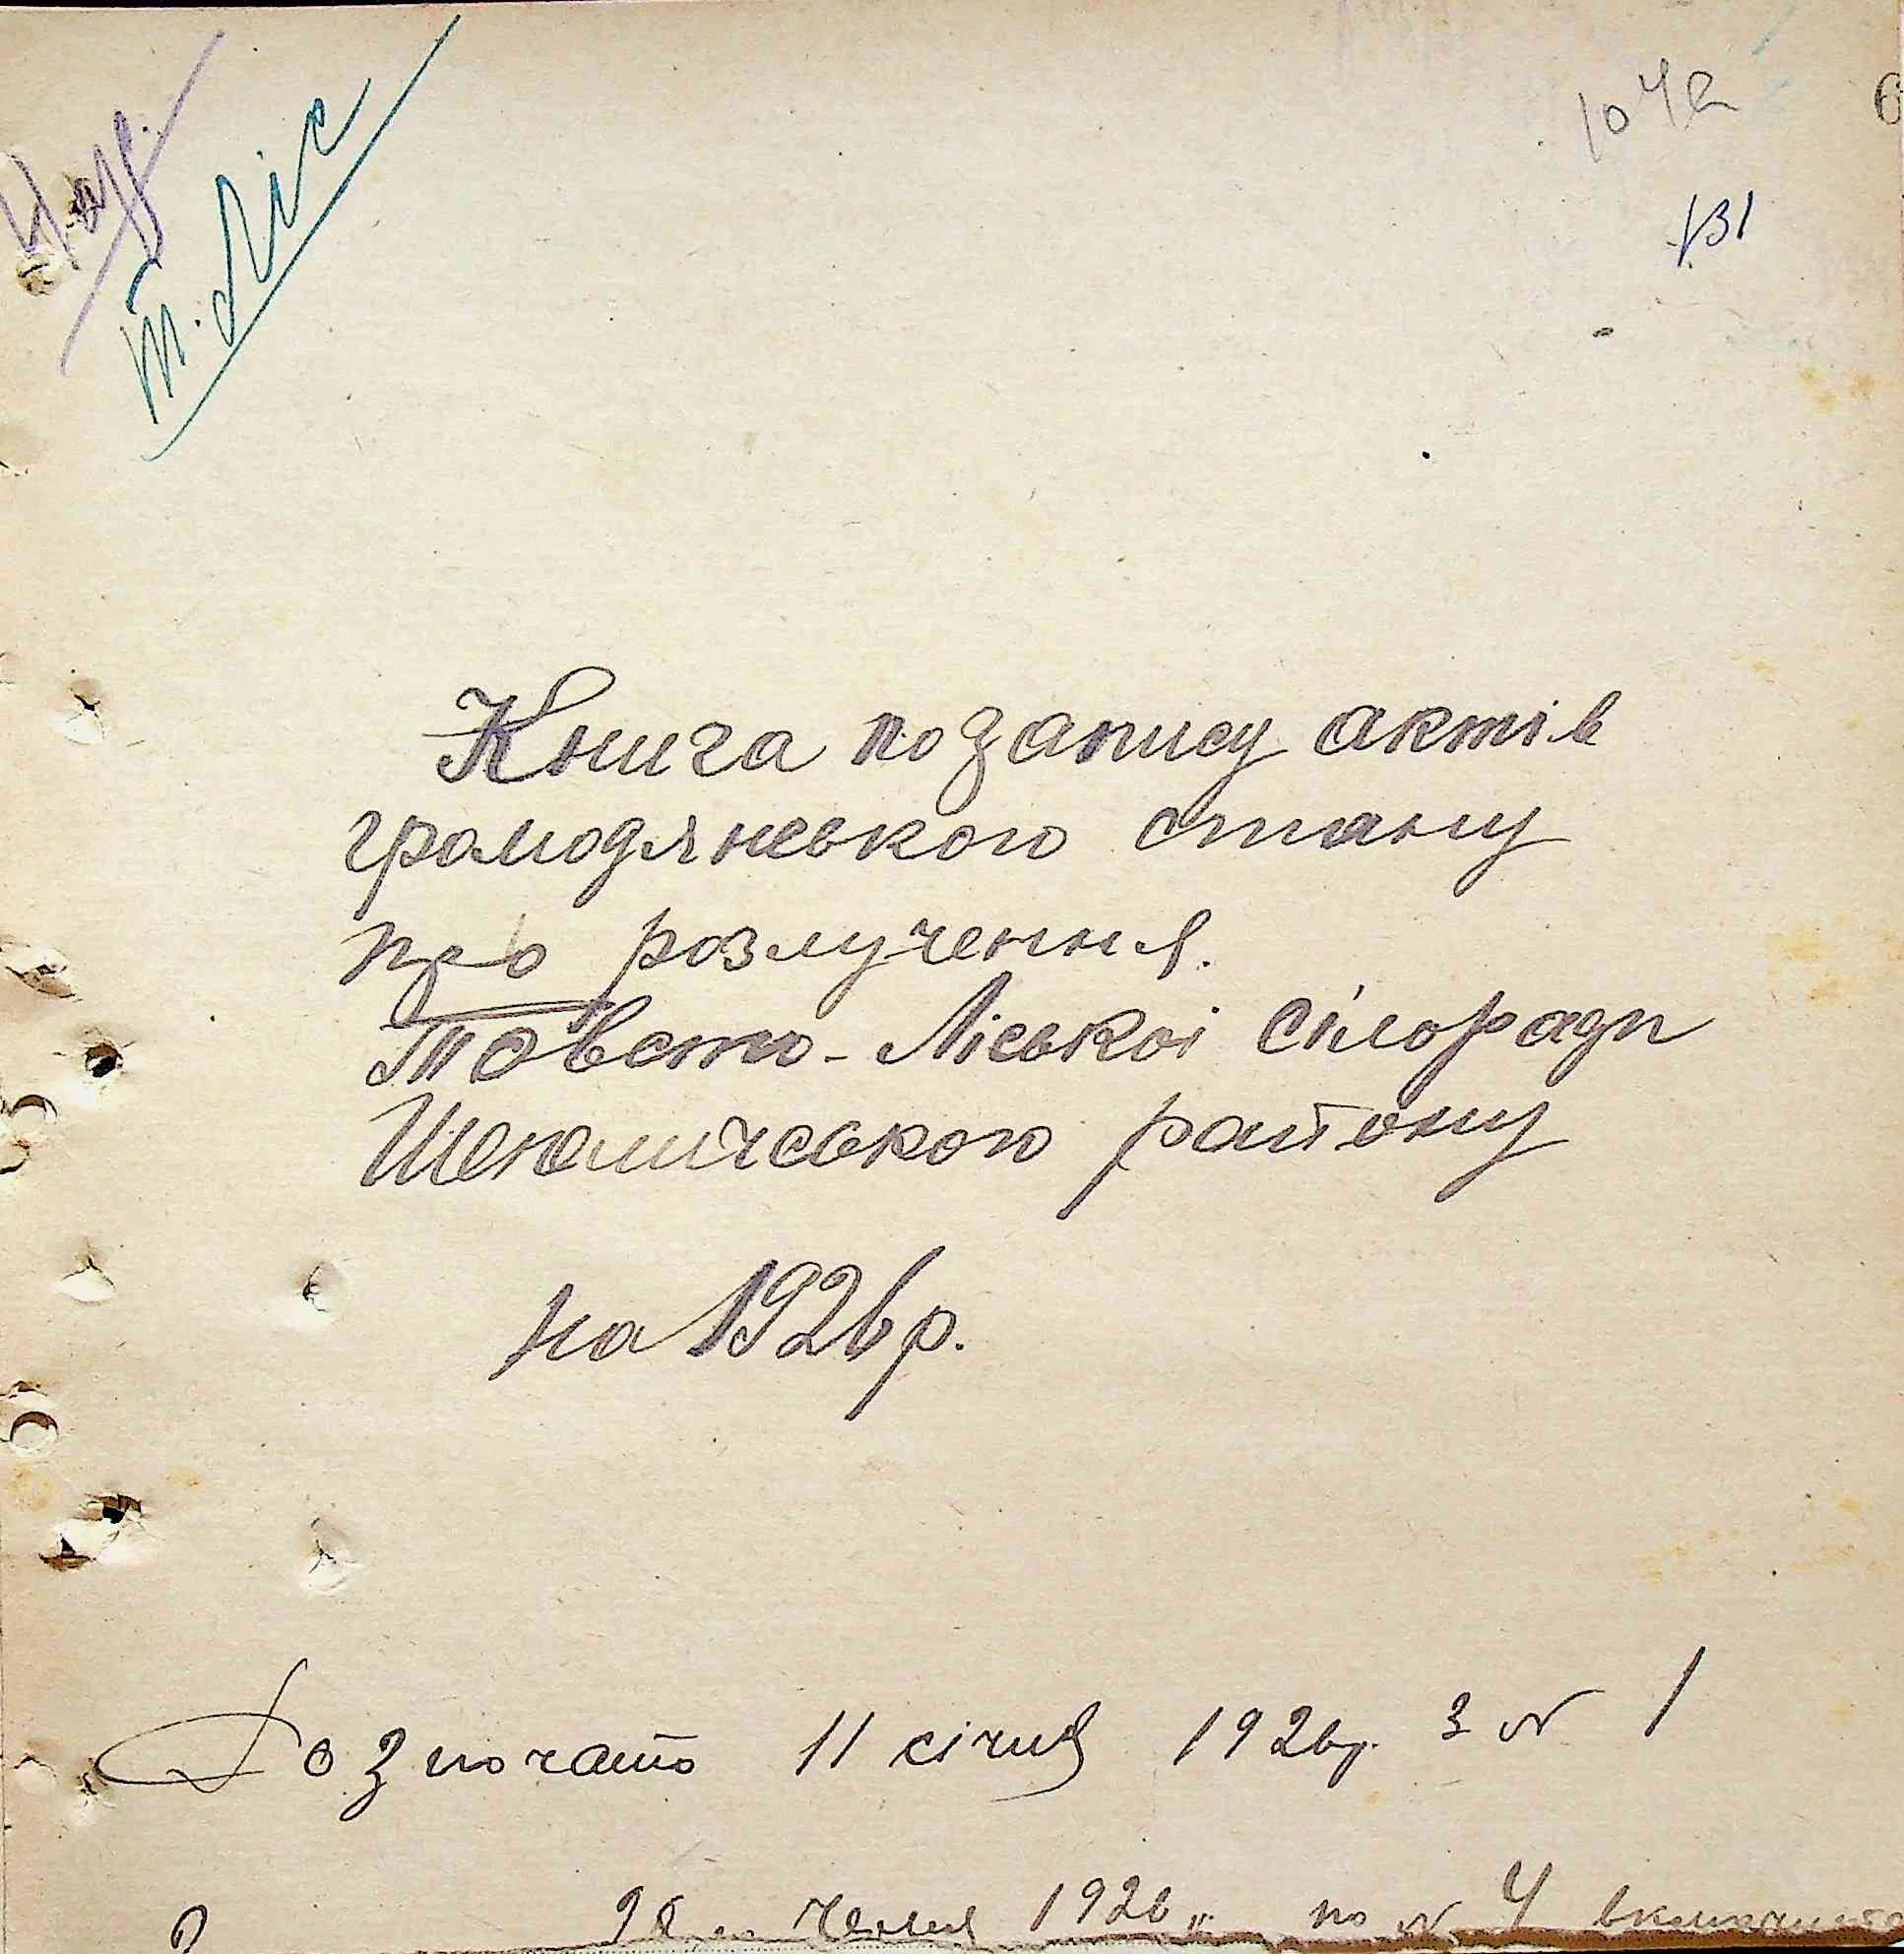 Т. Ліс
131
Книга по запису актів
громодянського стану
про розлучення.
Товсто-Ліської сілоради
Шепеличського району
на 1926 р.
Розпочато 11 січня 1926р. з № 1
1926 по № 4 включно